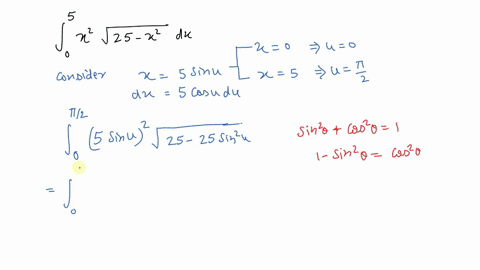 ∫₀⁵ x² √(25-x²) dx
consider x = 5 sinu
x=0 ⇒ u=0
x=5 ⇒ u=π/2
dx = 5 cosu du
∫₀^{π/2} (5 sinu)² √(25-25 sin²u)
sin²θ + cos²θ = 1
1-sin²θ = cos²θ
= ∫₀